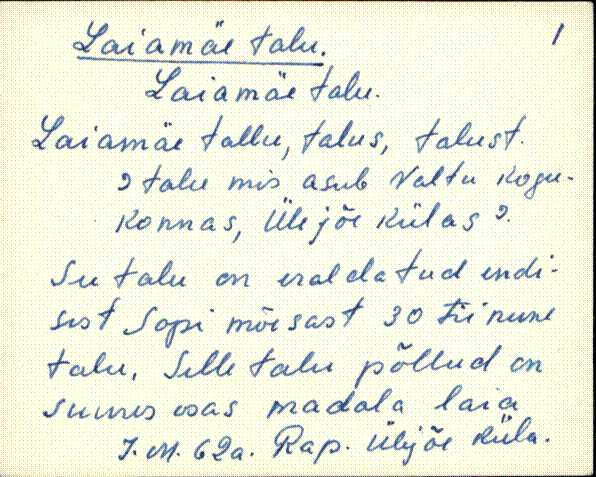 1
Laiamäe talu.
Laiamäe talu.
Laiamäe tallu, talus, talust.
? talu mis asub Valtu kogu-
konnas, Ülejõe külas ?.
See talu on eraldatud endi-
sest Sopi mõisast 30 tiinune
talu. Selle talu põllud on
suures osas madala laia
J. M. 62a. Rap. Ülejõe küla.